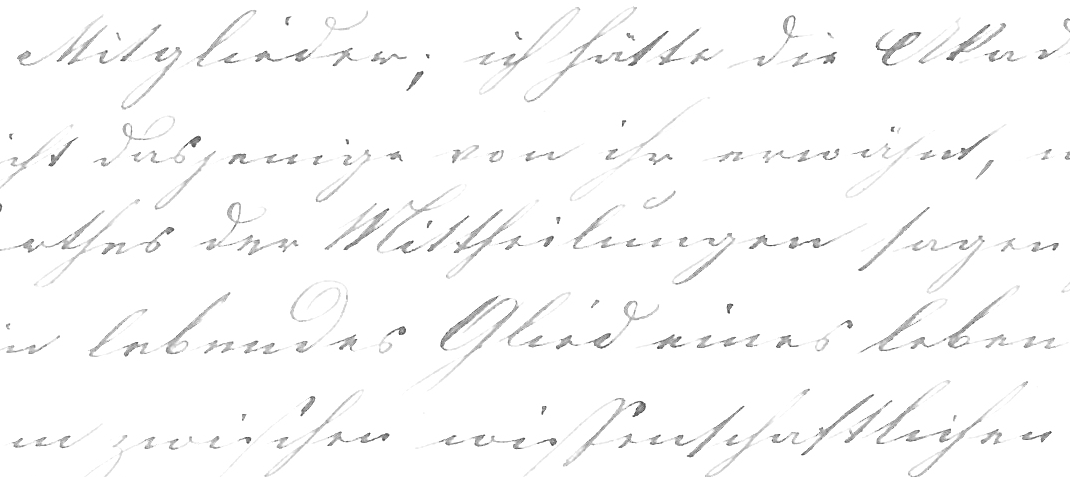 Mitglieder; ich hätte die Akad
icht dasjenige von ihr erwähnt, w
erthes der Mittheilungen sagen
in lebendes Glied eines leben
m zwischen wissenschaftlichen